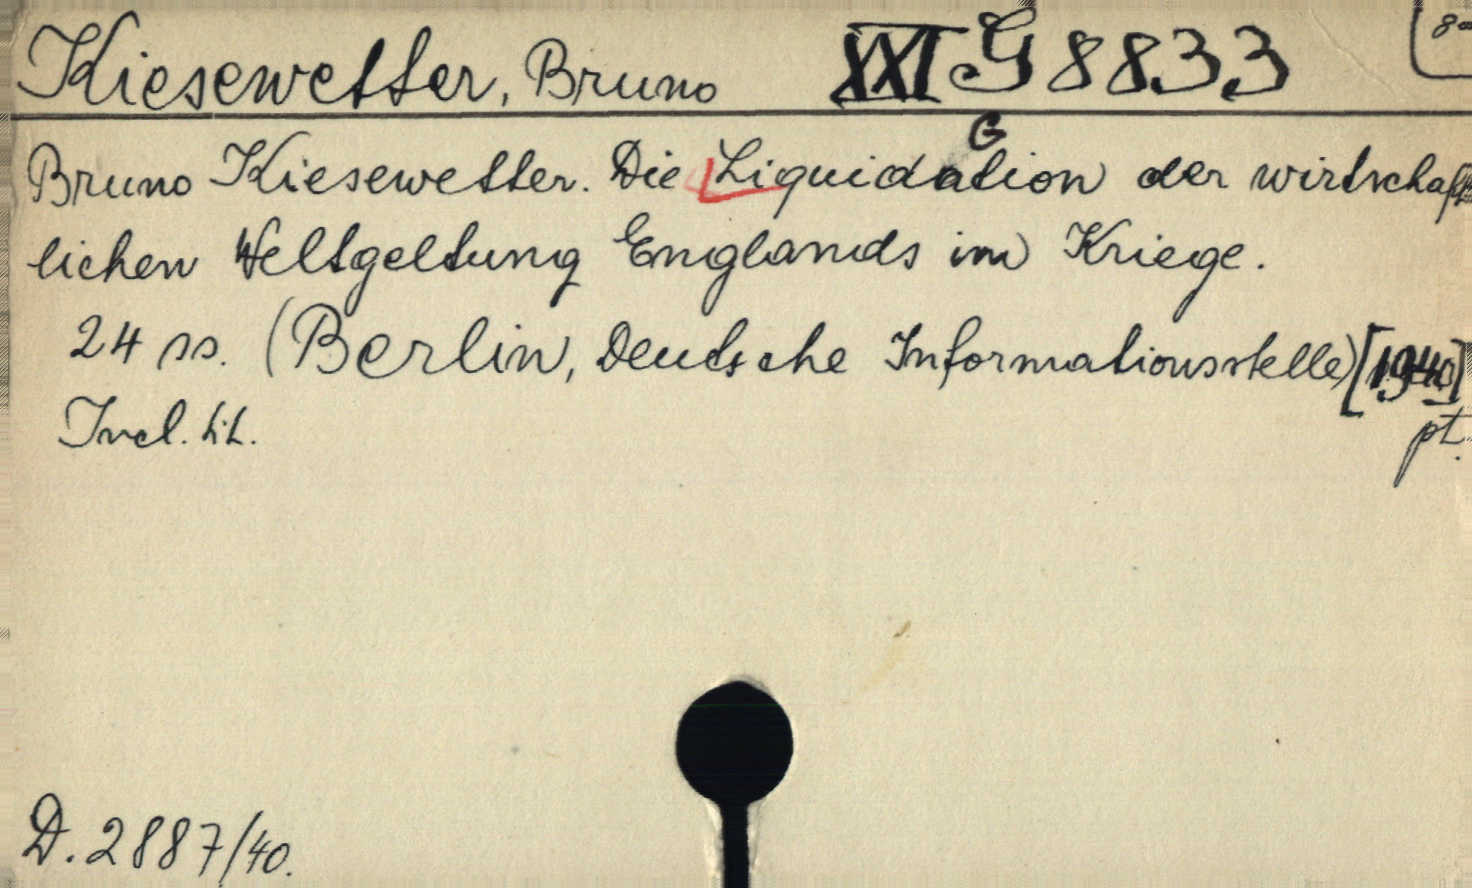 Kiesewetter, Bruno XXI G 8833 8°
G
Bruno Kiesewetter. Die Liquidation der wirtschaft-
lichen Weltgeltung Englands im Kriege.
24 ss. (Berlin, Deutsche Informationsstelle) [1940]
Incl. tit. pt.
D. 2887/40.